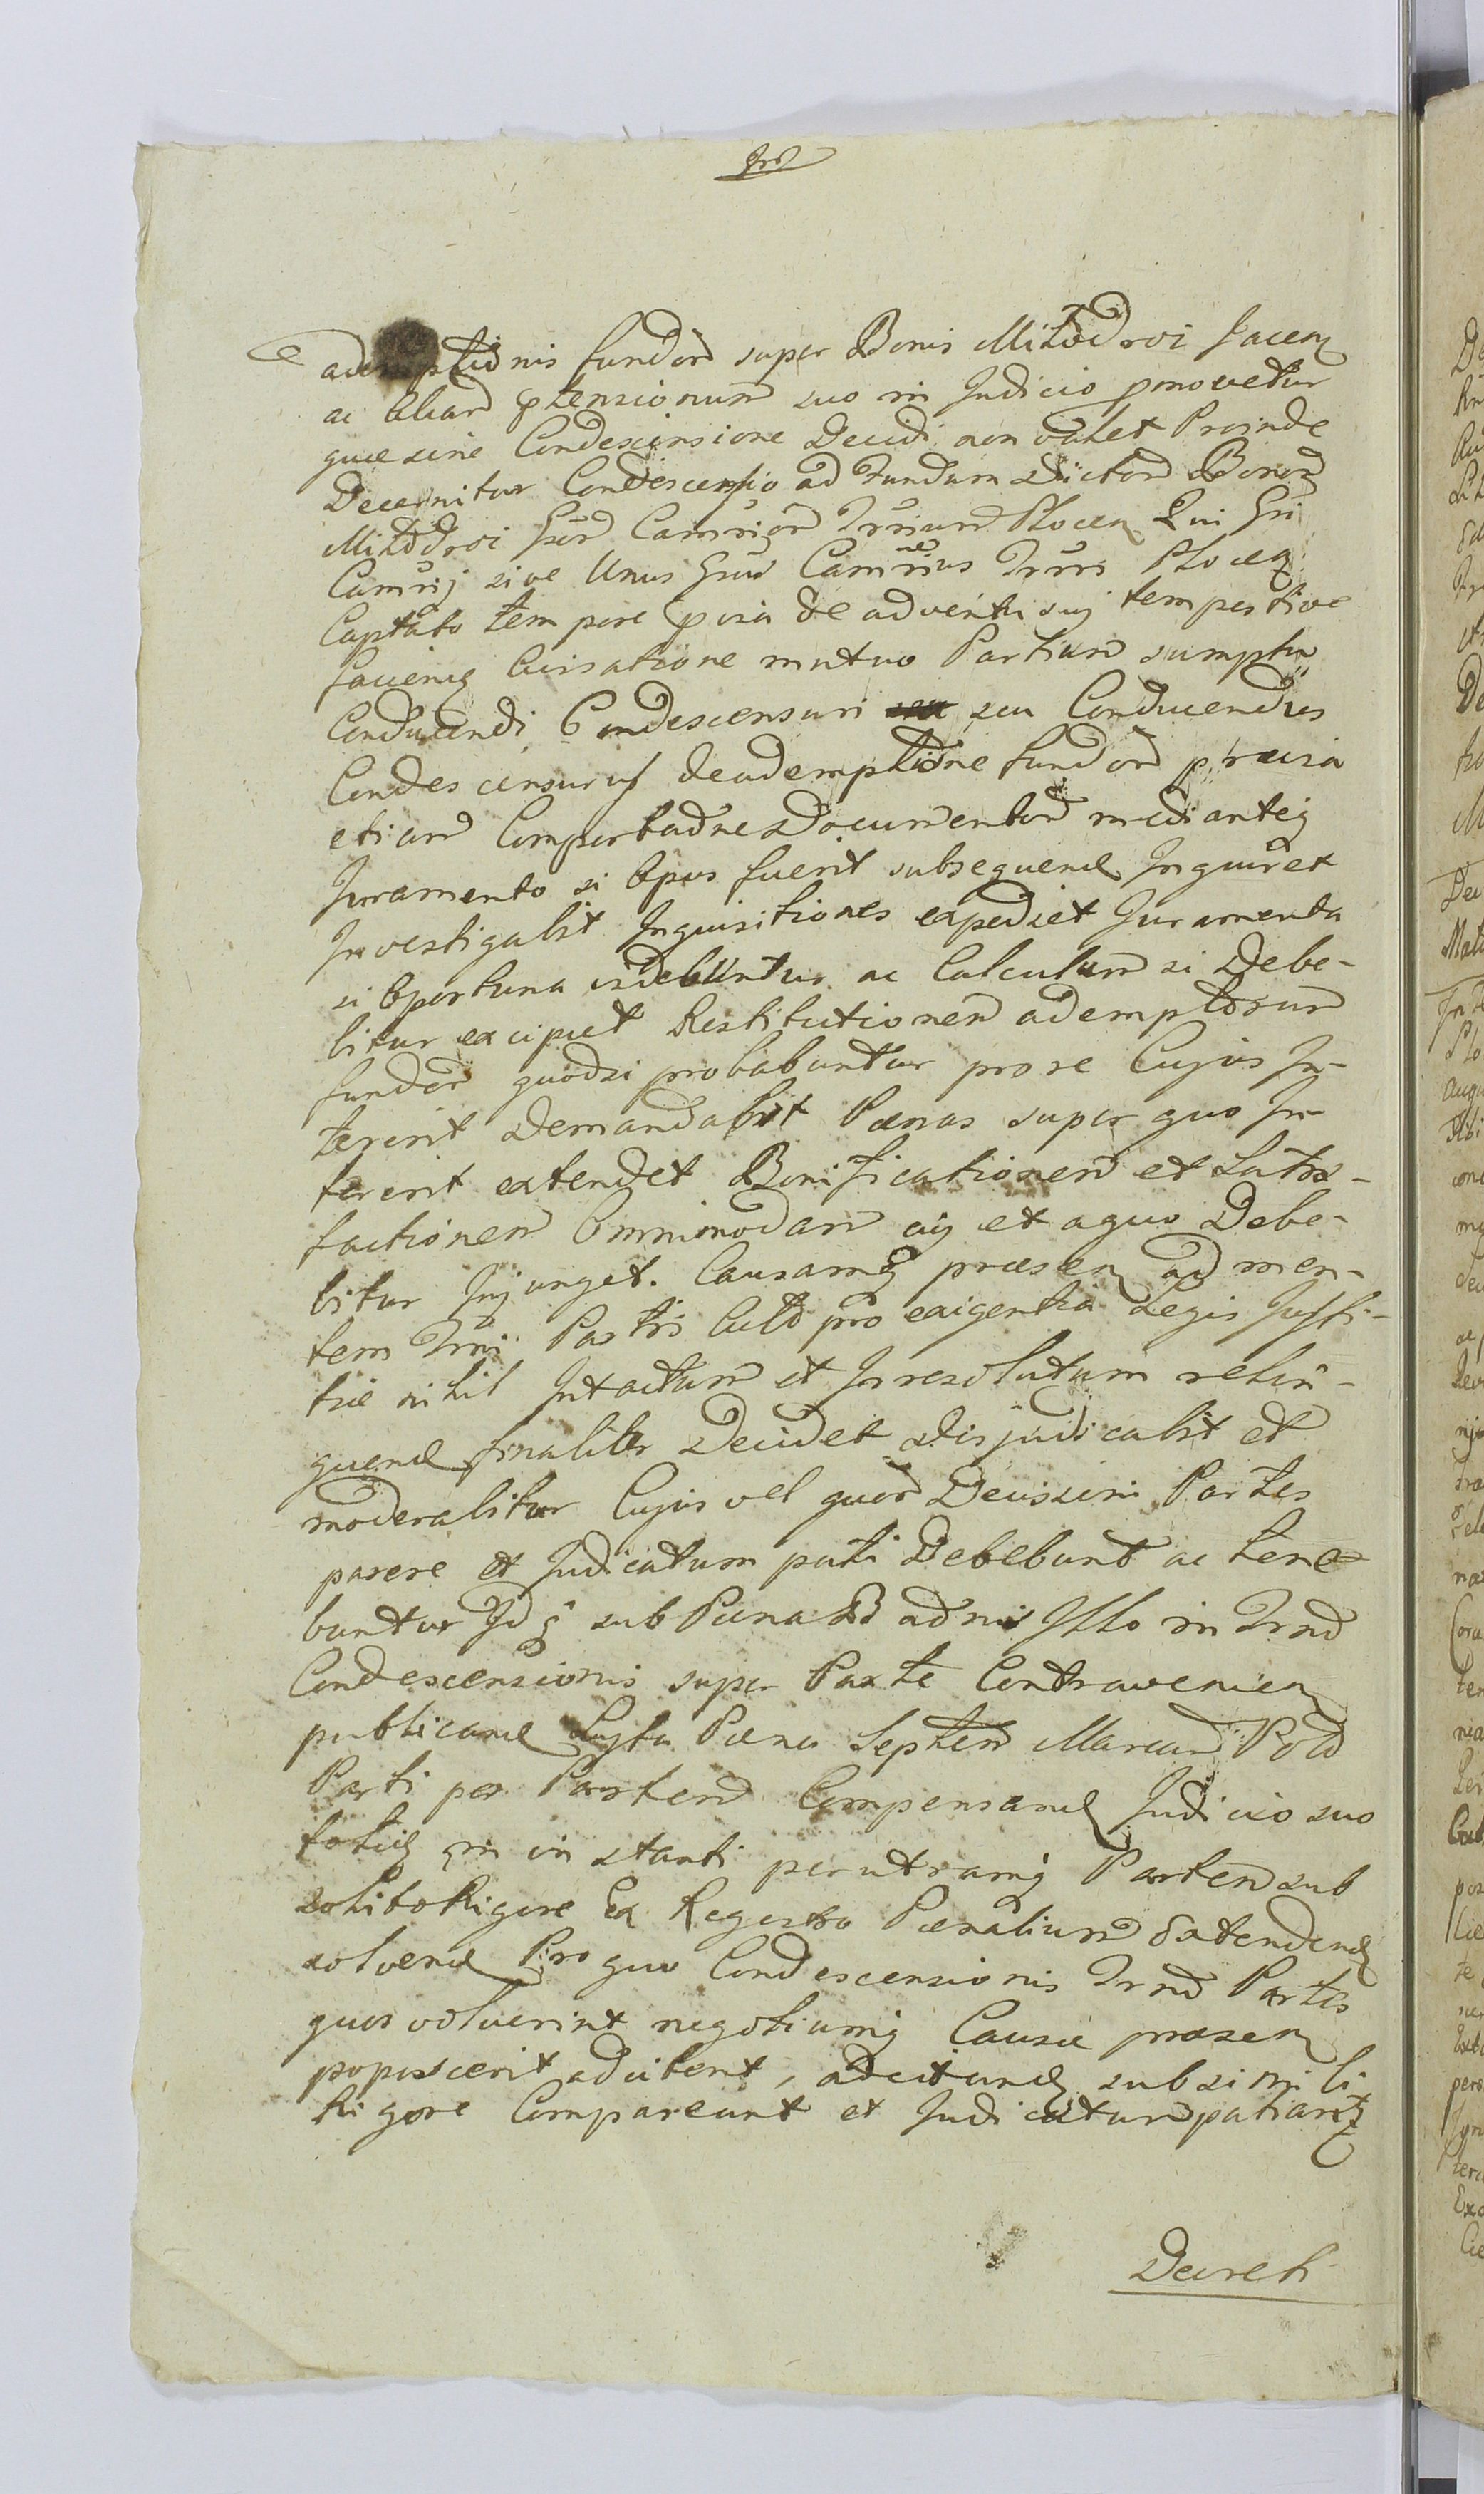 ademptionis fundor super Bonis Miłodroż Jacen
ac aliar ptensionum suo in Judicio pmovetur
quae sine Condescensione Decidi non valet Proinde
Decernitur Condescensio ad Fundum Dictor Bonor
Miłodroż Gsor Camrior Trrium Plocen Qui Gsi
Camrij sive Unus Gsus Camrius Trris Plocen
Captato tempore pvia de adventu suj tempestive
facienq Avisatione mutuo Partium sumptu
Conducendi Condescensuri seu Conducendus
Condescensurus de ademptione fundor pvia
etiam Comportadne Documentor medianteq
Juramento si Opus fuerit subsequend Inquiret
Investigabit Inquisitiones expediet Juramenta
si Oportuna videbuntur ac Calculum si Debe-
bitur excipiet Restitutionem ademptorum
fundor quodsi probabuntur pro re Cujus In-
tererit Demandabit Pænas super quo In-
tererit extendet Bonificationem et Satis-
factionem Omnimodam cuj et a quo Debe-
bitur Injunget. Causamq præsen ad men-
tem Trni Partis Actd pro exigentia Legis Justi-
tiæ nihil Intactum et Irresolutum relin-
quend finaliter Decidet Disjudicabit et
moderabitur Cujus vel quor Decisioni Partes
parere et Judicatum pati Debebunt ac tene-
buntur Idq sub Pæna Badnis Illo in Trno
Condescensionis super Parte Contravenien
publicand Luyta Pæna Septem Marcar Pold
Parti per Partem Compensand Judicio suo
totidq in instanti per utramq Partem sub
solito Rigore Ex Regestro Pænalium Extendend
solvend Pro quo Condescensionis Trno Partes
quos voluerint negotiumq Causæ præsen
poposcerit adcitent, adcitandq sub simili
Rigore Compareant et Judicatum patiantur
Decreti